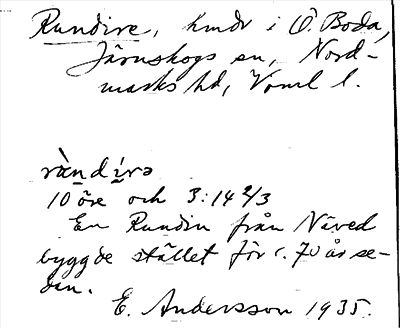 Rundire, hmdr i Ö. Boda,
Järnskogs sn, Nord-
marks hd, Vrml l.
ràndírə
10 öre och 3:14 2/3
En Rundin från Näved
byggde stället för c. 70 år se-
dan.
E. Andersson 1935.